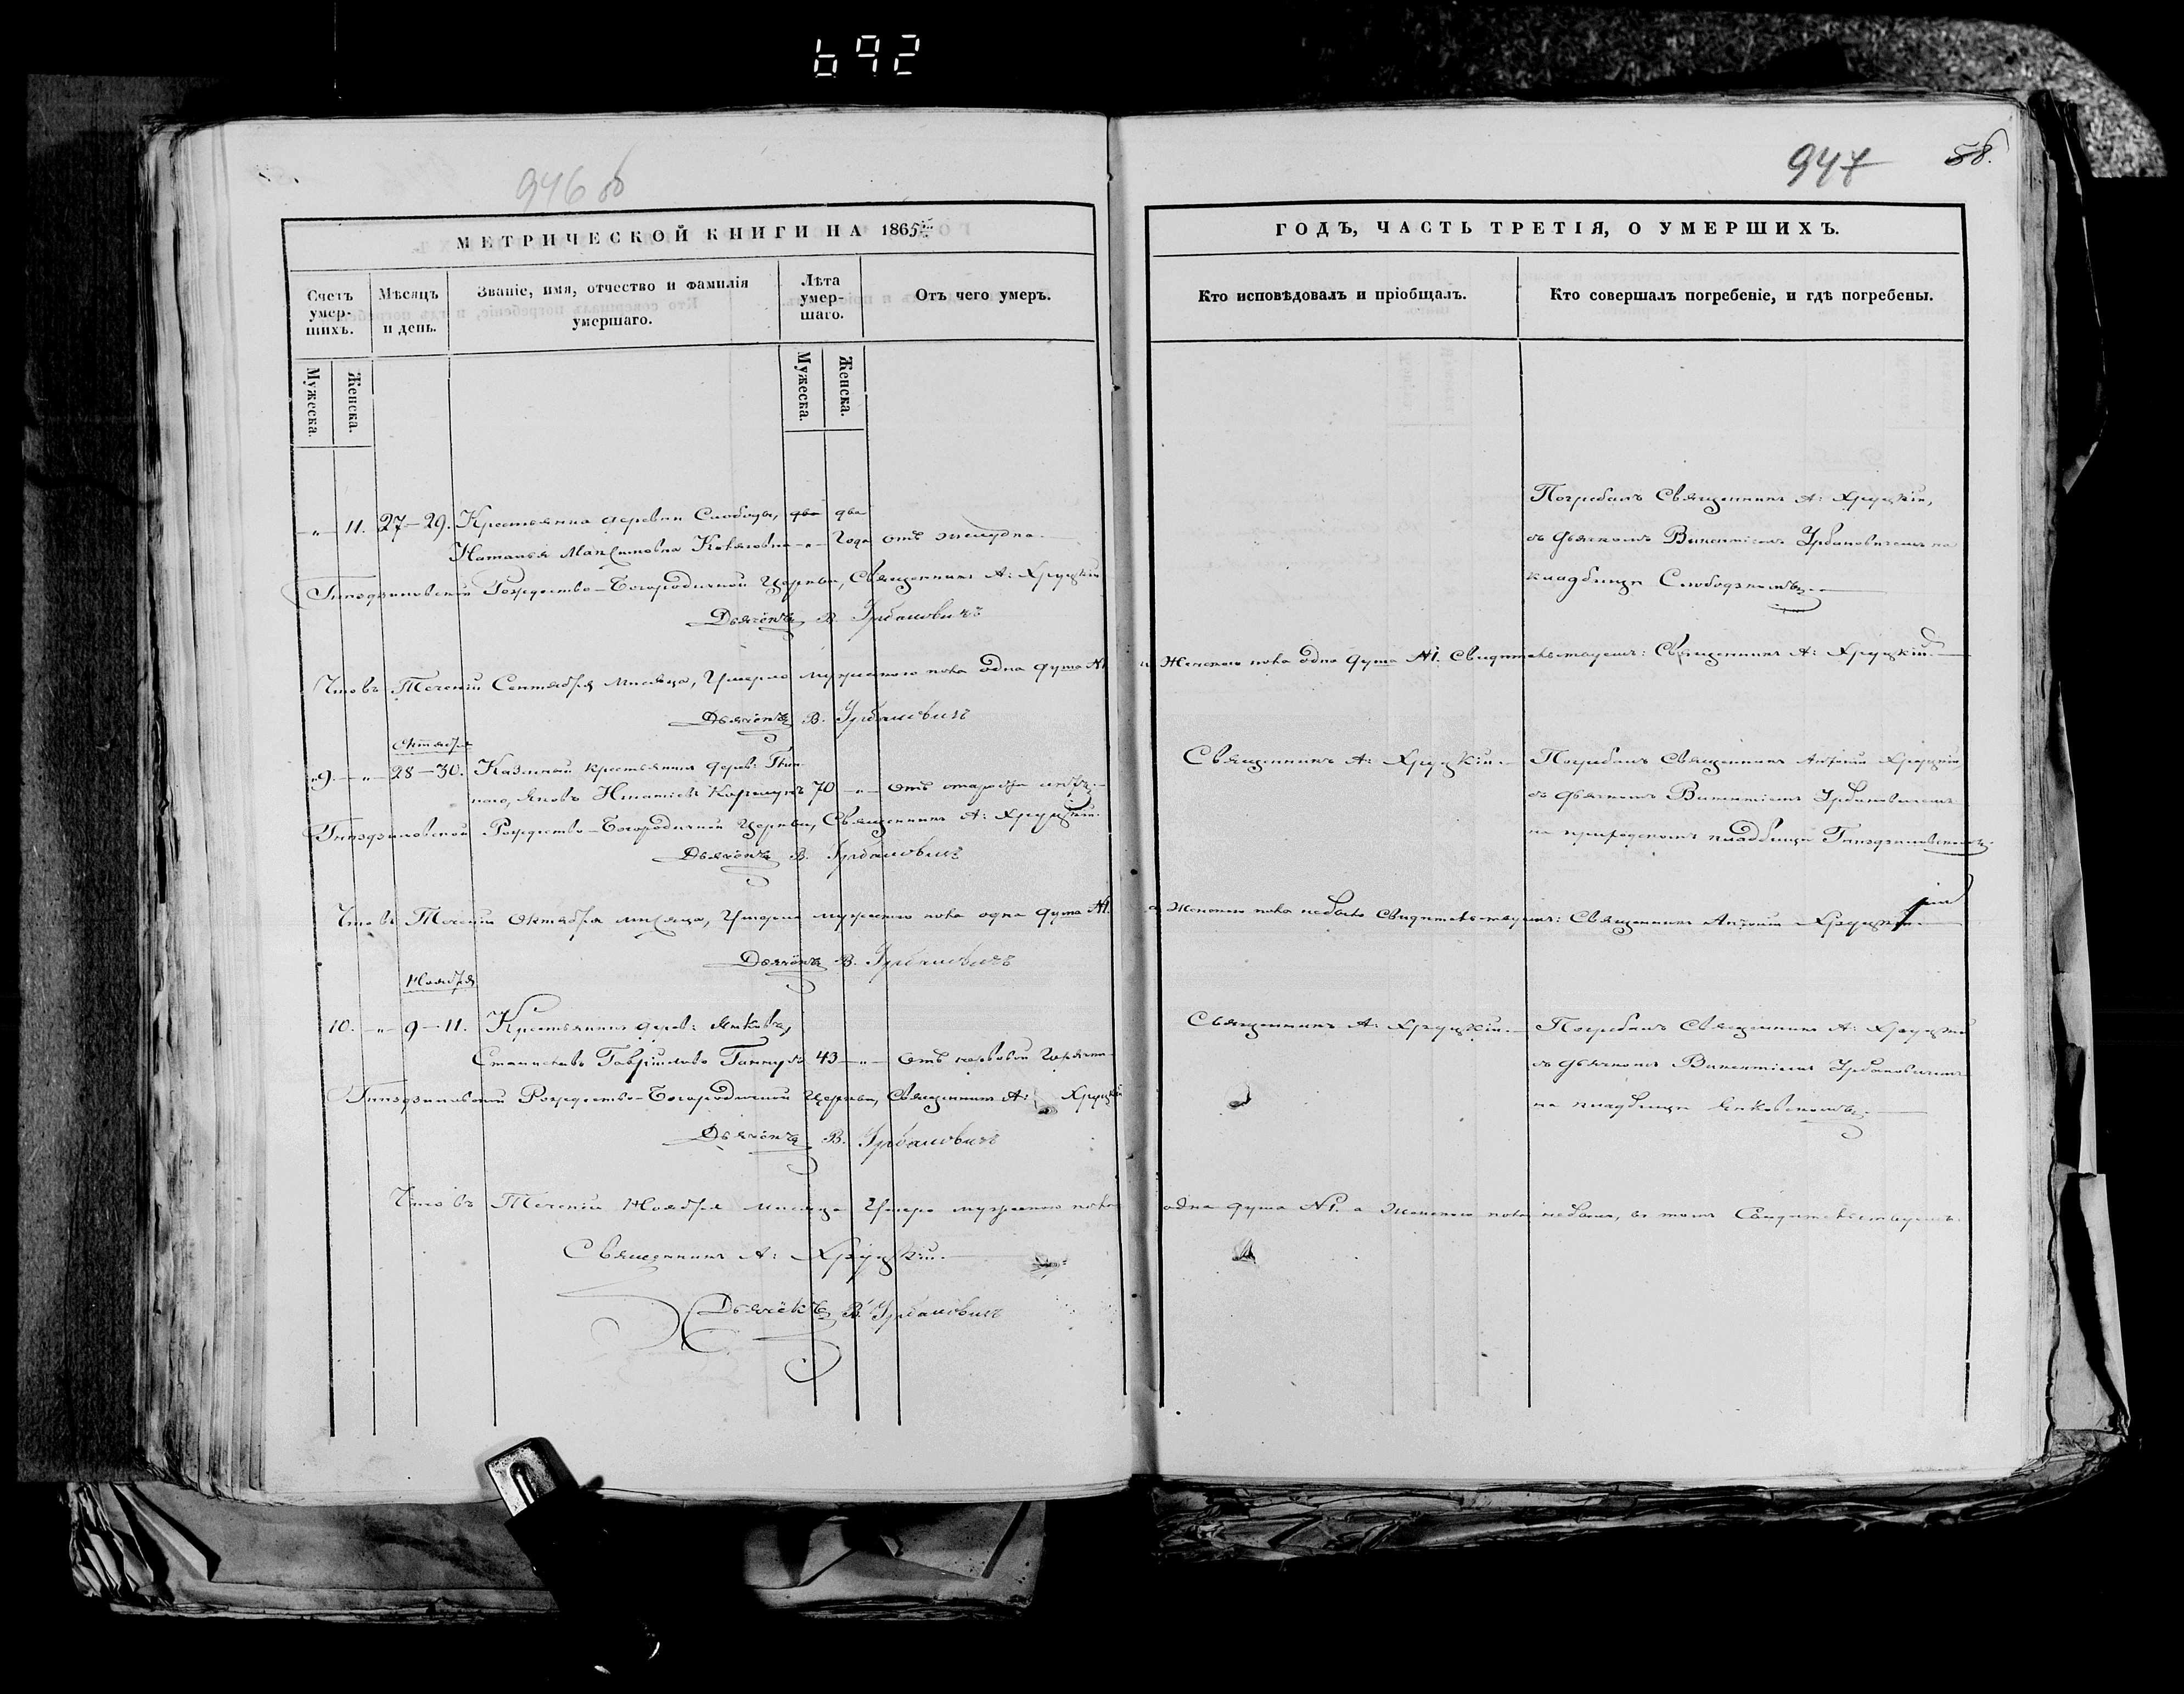 692
946 об
947
58.
МЕТРИЧЕСКОЙ КНИГИ НА 1865
ГОДЪ, ЧАСТЬ ТРЕТІЯ, О УМЕРШИХЪ.
Счетъ умер-
шихъ.
Мѣсяцъ
и день.
Званіе, имя, отчество и фамилія
умершаго.
Лѣта
умер-
шаго.
Отъ чего умеръ.
Кто исповѣдовалъ и пріобщалъ.
Кто совершалъ погребеніе, и гдѣ погребены.
Мужеска.
Женска.
Мужеска.
Женска.
11. 27-29. Крестьянка деревни Слободы, два два
Наталья Максимовна года отъ
Погребалъ Священникъ А: Хруцкій,
съ Дьячкомъ Викентіемъ Урбановичемъ на
кладбищѣ
Рождество-Богородичной Церкви, Священникъ А: Хруцкій
Дьячёкъ В. Урбановичъ
Что въ Теченіи Сентября мѣсяца, Умерло мужескаго пола одна душа №1
и Женскаго пола одна душа №1. Свидѣтельствуемъ: Священникъ А: Хруцкій
Дьячёкъ В. Урбановичъ
Октября
9. 28-30. Казенный крестьянинъ дерев:
Яковъ Игнатіевъ 70 Отъ старости
Священникъ А: Хруцкій.
Погребалъ Священникъ Антоній Хруцкій,
съ Дьячкомъ Викентіемъ Урбановичемъ
на приходскомъ кладбищѣ
Рождество-Богородичной Церкви, Священникъ А: Хруцкій.
Дьячёкъ В. Урбановичъ
Что въ Теченіи Октября мѣсяца, Умерло мужескаго пола одна душа №1.
а Женскаго пола небыло Свидѣтельствуемъ: Священникъ Антоній Хруцкій
Дьячёкъ В. Урбановичъ
Ноября
10. 9-11. Крестьянинъ дерев:
Станиславъ Гавріиловъ 43 Отъ нервовой
Священникъ А: Хруцкій.
Погребалъ Священникъ А: Хруцкій
съ Дьячкомъ Викентіемъ Урбановичемъ
на кладбищѣ
Рождество-Богородичной Церкви, Священникъ А: Хруцкій
Дьячёкъ В. Урбановичъ
Что въ Теченіи Ноября мѣсяца Умерло мужескаго пола
одна душа №1. а Женскаго пола небыло, въ томъ Свидѣтельствуемъ:
Священникъ А: Хруцкій.
Дьячёкъ В. Урбановичъ